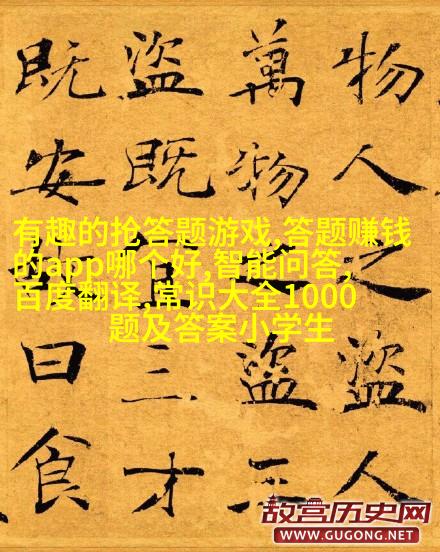 物人之盜人
萬物之盜三
盜既宜三才
既安故曰食
有趣的抢答题游戏,答题赚钱
的app哪个好,智能问答,
百度翻译,常识大全1000
题及答案小学生
故宫历史网
WWW.GUGONG.NET